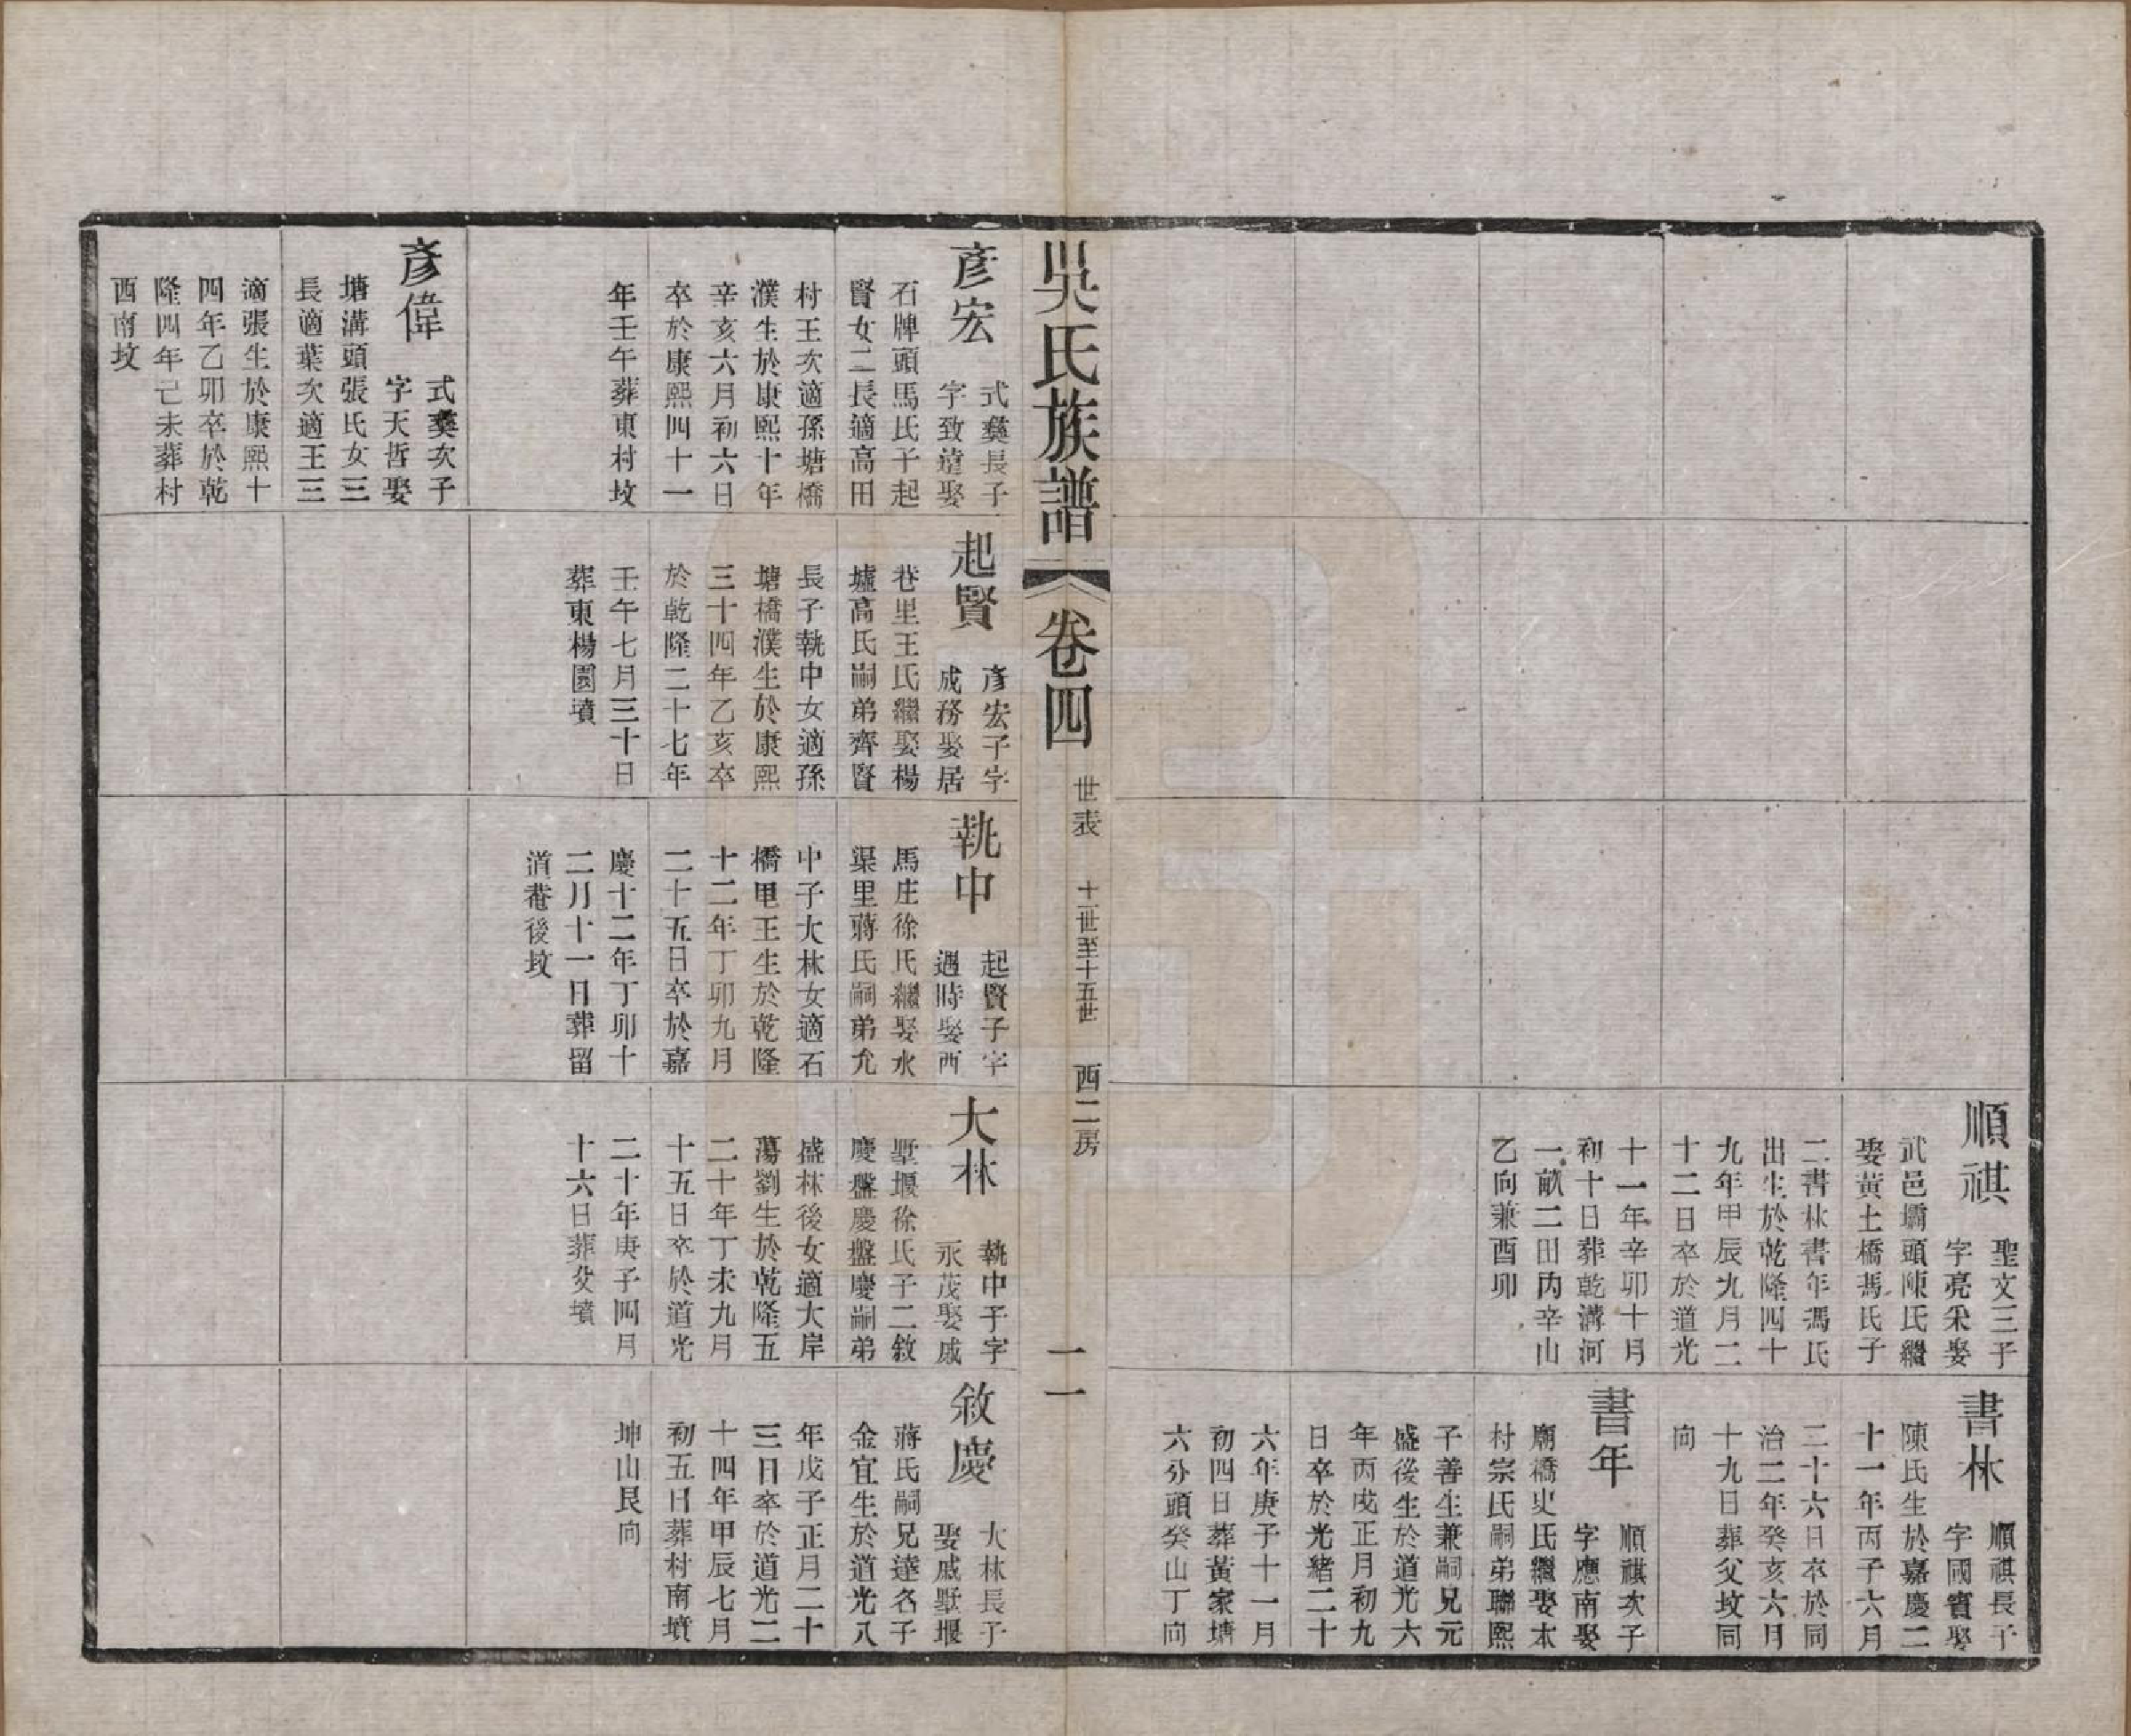 順祺
聖文三子
字亮采娶
武邑壩頭陳氏繼
娶黃土橋馮氏子
二書林書年馮氏
出生於乾隆四十
九年甲辰九月二
十二日卒於道光
十一年辛卯十月
初十日葬乾溝河
一畝二田丙辛山
乙向兼酉卯
書林
順祺長子
字國賓娶
陳氏生於嘉慶二
十一年丙子六月
二十六日卒於同
治二年癸亥六月
十九日葬父坟同
向
書年
順祺次子
字應南娶
廟橋史氏繼娶本
村宗氏嗣弟聯熙
子善生兼嗣兄元
盛後生於道光六
年丙戌正月初九
日卒於光緒二十
六年庚子十一月
初四日葬黃家塘
六分頭癸山丁向
吳氏族譜 卷四 世表 十一世至十五世 西二房 二
彥宏
式彝長子
字致遠娶
石牌頭馬氏子起
賢女二長適高田
村王次適孫塘橋
濮生於康熙十年
辛亥六月初六日
卒於康熙四十一
年壬午葬東村坟
彥偉
式彝次子
字天哲娶
塘溝頭張氏女三
長適葉次適王三
適張生於康熙十
四年乙卯卒於乾
隆四年己未葬村
西南坟
起賢
彥宏子字
成務娶居
巷里王氏繼娶楊
墟高氏嗣弟齊賢
長子執中女適孫
塘橋濮生於康熙
三十四年乙亥卒
於乾隆二十七年
壬午七月三十日
葬東楊園墳
執中
起賢子字
遇時娶西
馬庄徐氏繼娶水
渠里蔣氏嗣弟允
中子大林女適石
橋里王生於乾隆
十二年丁卯九月
二十五日卒於嘉
慶十二年丁卯十
二月十一日葬留
道菴後坟
大林
執中子字
永茂娶戚
墅堰徐氏子二敘
慶盤慶盤慶嗣弟
盛林後女適大岸
蕩劉生於乾隆五
二十年丁未九月
十五日卒於道光
二十年庚子四月
十六日葬父墳
敘慶
大林長子
娶戚墅堰
蔣氏嗣兄達名子
金宜生於道光八
年戊子正月二十
三日卒於道光二
十四年甲辰七月
初五日葬村南墳
坤山艮向